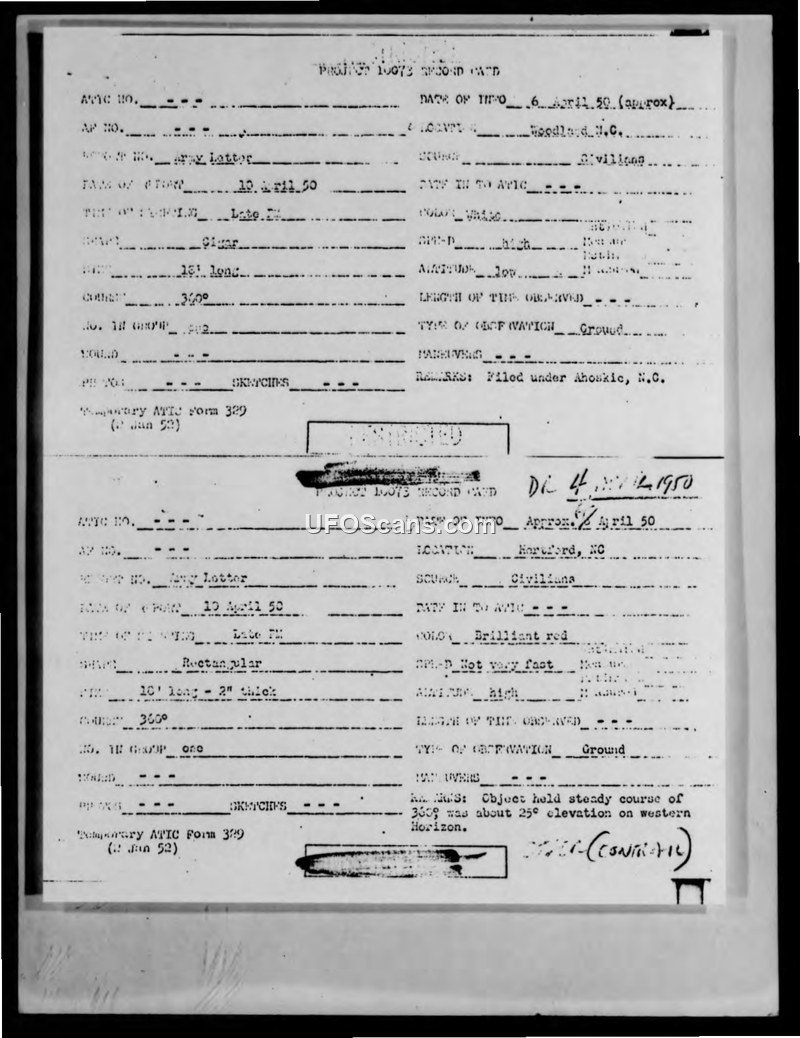 PROJECT 10073 RECORD CARD
ATIC NO. - - - DATE OF INFO 6 April 50 (approx)
AF NO. - - - LOCATION Woodland N.C.
REPORT NO. Army Letter SOURCE Civilians
DATE OF REPORT 10 April 50 DATE IN TO ATIC - - -
TIME OF SIGHTING Late PM COLOR White
SHAPE Cigar SPEED high
SIZE 18' long ALTITUDE low
COURSE 360° LENGTH OF TIME OBSERVED - - -
NO. IN GROUP one TYPE OF OBSERVATION Ground
SOUND - - - MANEUVERS - - -
PHOTOS - - - SKETCHES - - - REMARKS: Filed under Ahoskie, N.C.
Temporary ATIC Form 329
(2 Jan 52)
RESTRICTED
PROJECT 10073 RECORD CARD
1950
UFOScans.com
ATIC NO. - - - DATE OF INFO Approx. April 50
AF NO. - - - LOCATION Hertford, NC
REPORT NO. Army Letter SOURCE Civilians
DATE OF REPORT 10 April 50 DATE IN TO ATIC - - -
TIME OF SIGHTING Late PM COLOR Brilliant red
SHAPE Rectangular SPEED Not very fast
SIZE 18' long - 2" thick ALTITUDE high
COURSE 360° LENGTH OF TIME OBSERVED - - -
NO. IN GROUP one TYPE OF OBSERVATION Ground
SOUND - - - MANEUVERS - - -
PHOTOS - - - SKETCHES - - - REMARKS: Object held steady course of
360° was about 25° elevation on western
Horizon.
Temporary ATIC Form 329
(2 Jan 52)
(CONTRAIL)